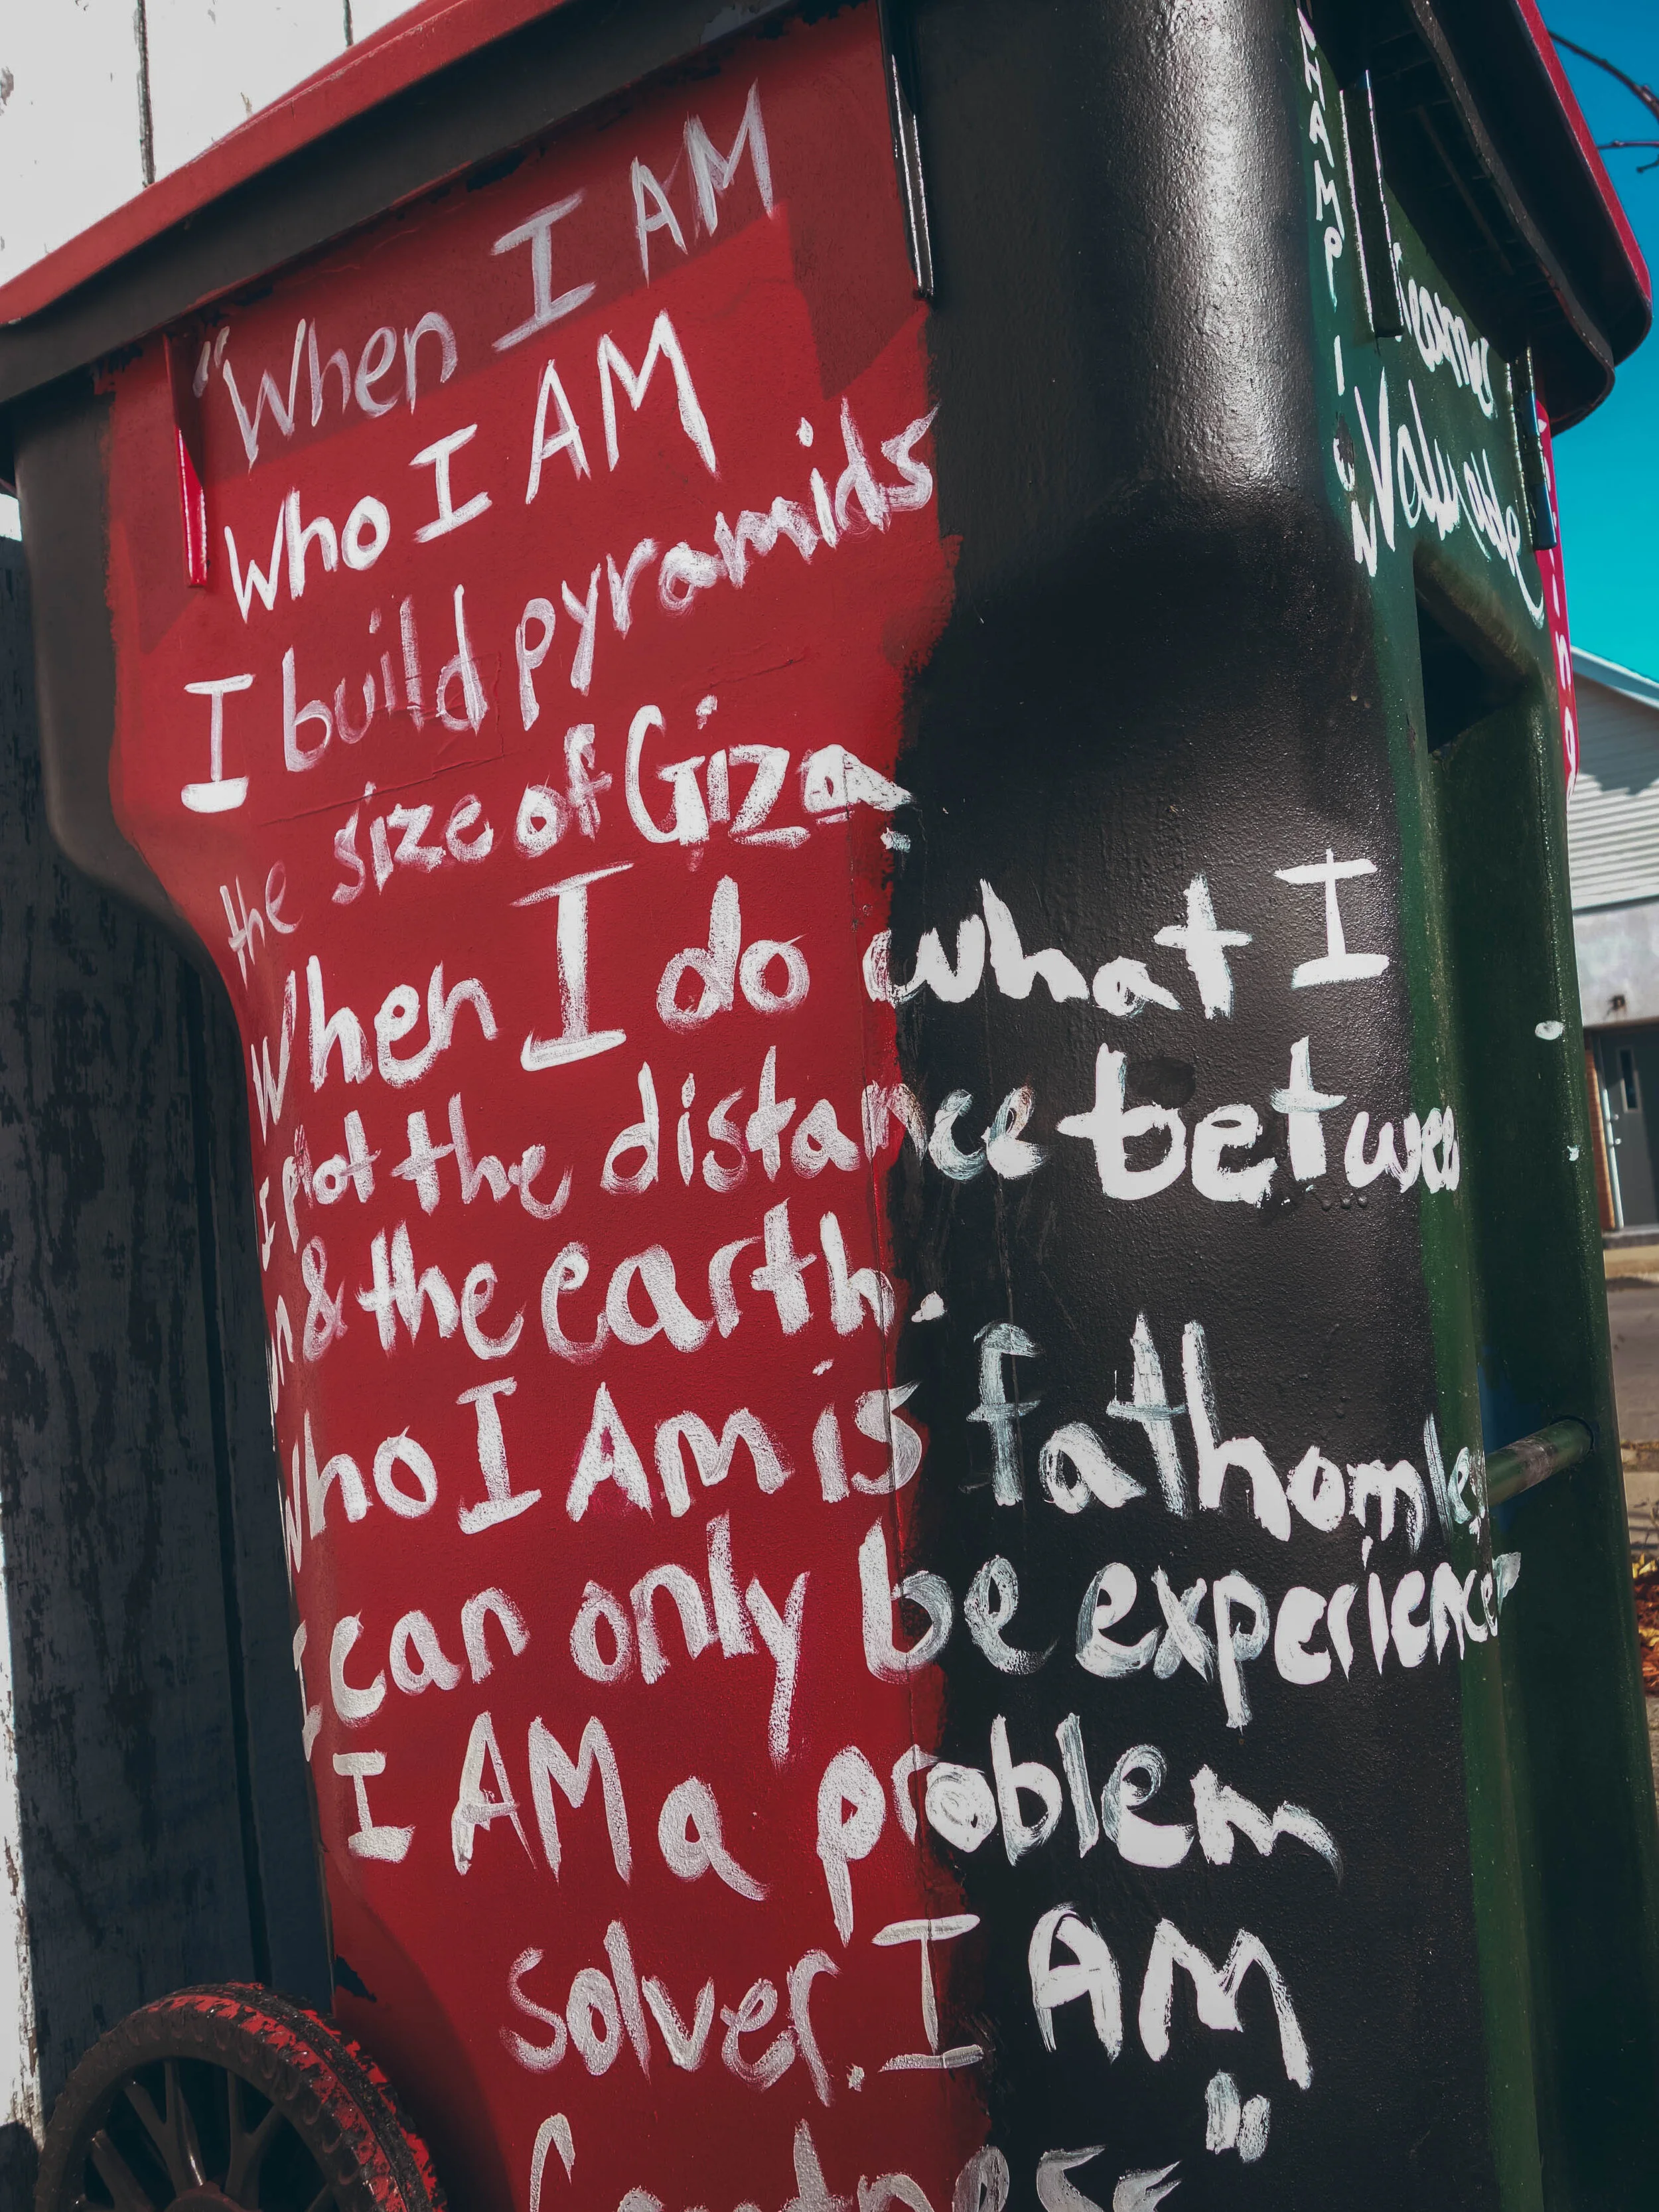 "When I AM
Who I AM
I build pyramids
the size of Giza.
When I do what I
I plot the distance between
& the earth.
Who I Am is fathomle
I can only be experience
I AM a problem
solver. I AM
"
CHAMPION
Valuable